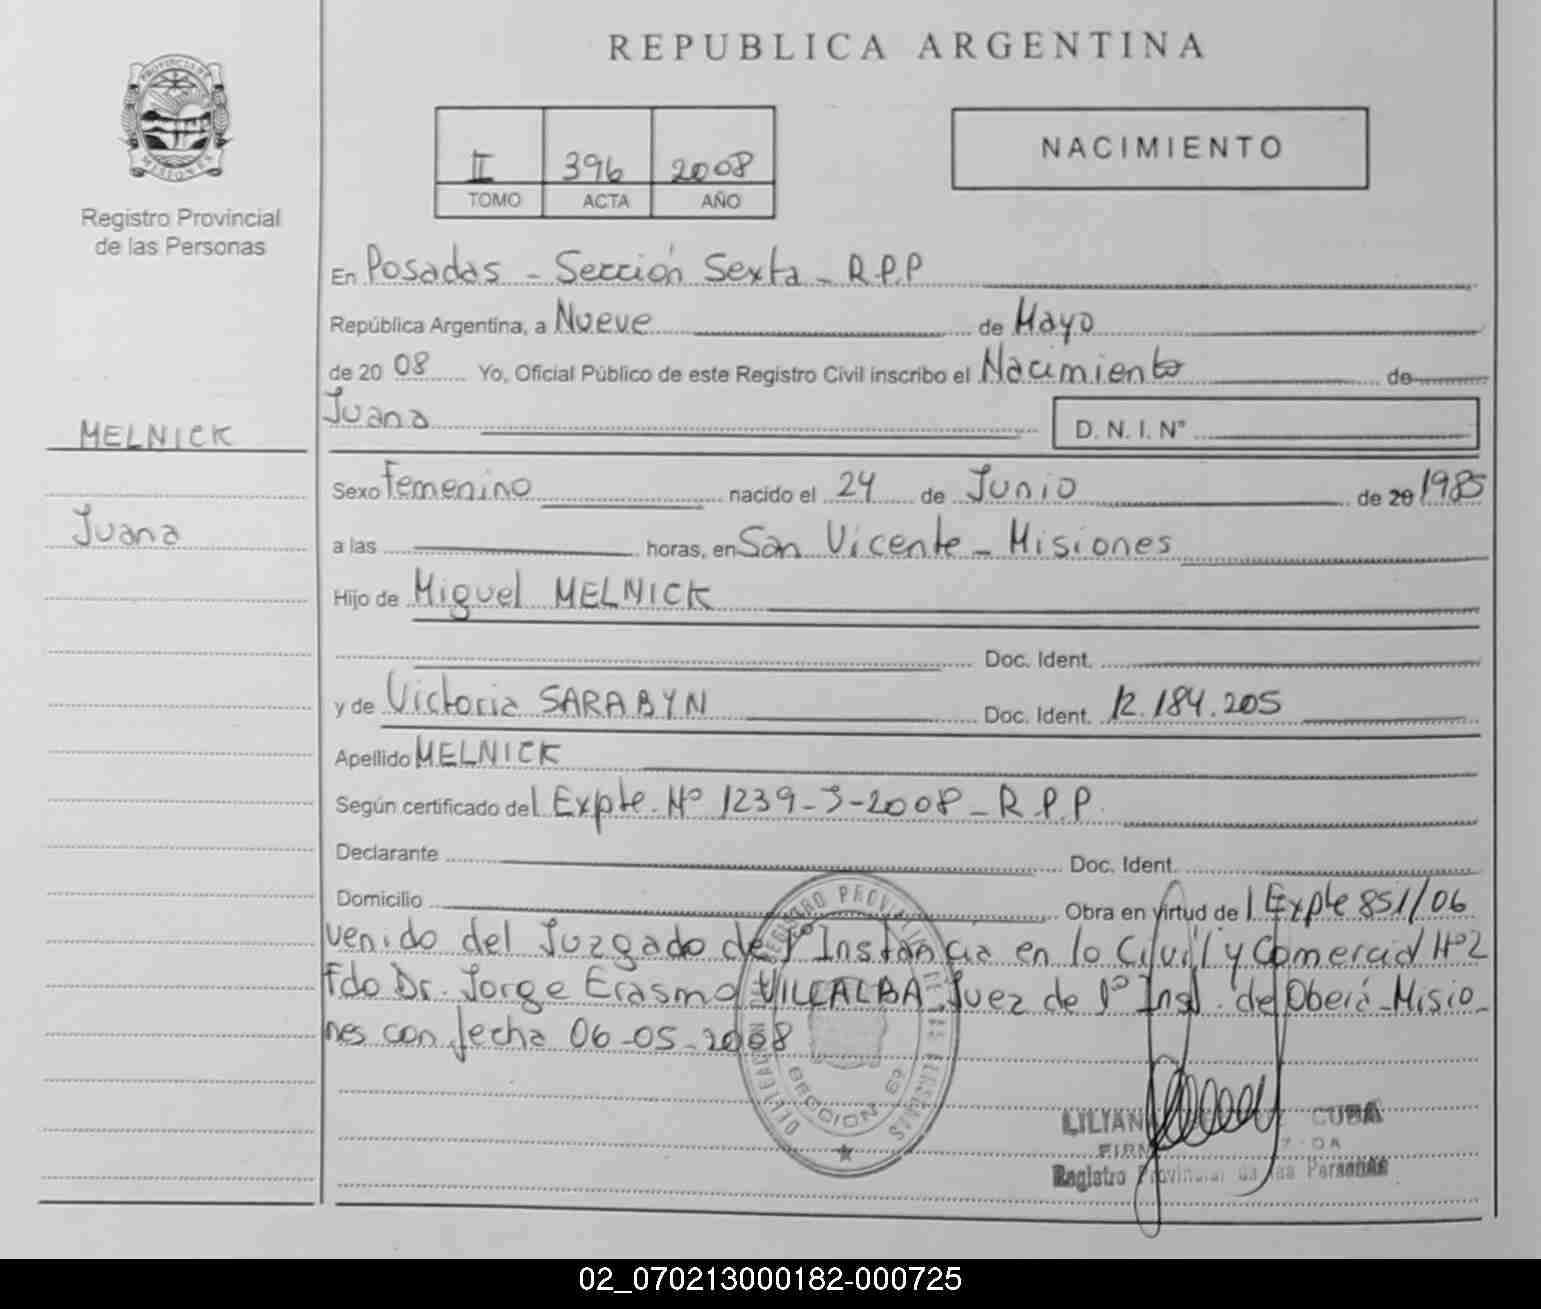 REPUBLICA ARGENTINA
PROVINCIA DE
MISIONES
Registro Provincial
de las Personas
II 396 2008
TOMO ACTA AÑO
NACIMIENTO
En Posadas - Sección Sexta - R.P.P
República Argentina, a Nueve de Mayo
de 20 08 Yo, Oficial Público de este Registro Civil inscribo el Nacimiento de
Juana
D. N. I. N°
MELNICK
Juana
Sexo Femenino nacido el 24 de Junio de 20 1985
a las horas, en San Vicente - Misiones
Hijo de Miguel MELNICK
Doc. Ident.
y de Victoria SARABYN Doc. Ident. 12.184.205
Apellido MELNICK
Según certificado del Expte. N° 1239-J-2008 - R.P.P.
Declarante Doc. Ident.
Domicilio Obra en virtud del Expte 851/06
venido del Juzgado de 1° Instancia en lo Civil y Comercial N°2
Fdo Dr. Jorge Erasmo VILLALBA Juez de 1° Inst. de Oberá - Misio-
nes con fecha 06-05-2008
REGISTRO PROVINCIAL DE LAS PERSONAS
DELEGACION
SECCION 6a
LILIAN CUBA
Registro Provincial de las Personas
02_070213000182-000725